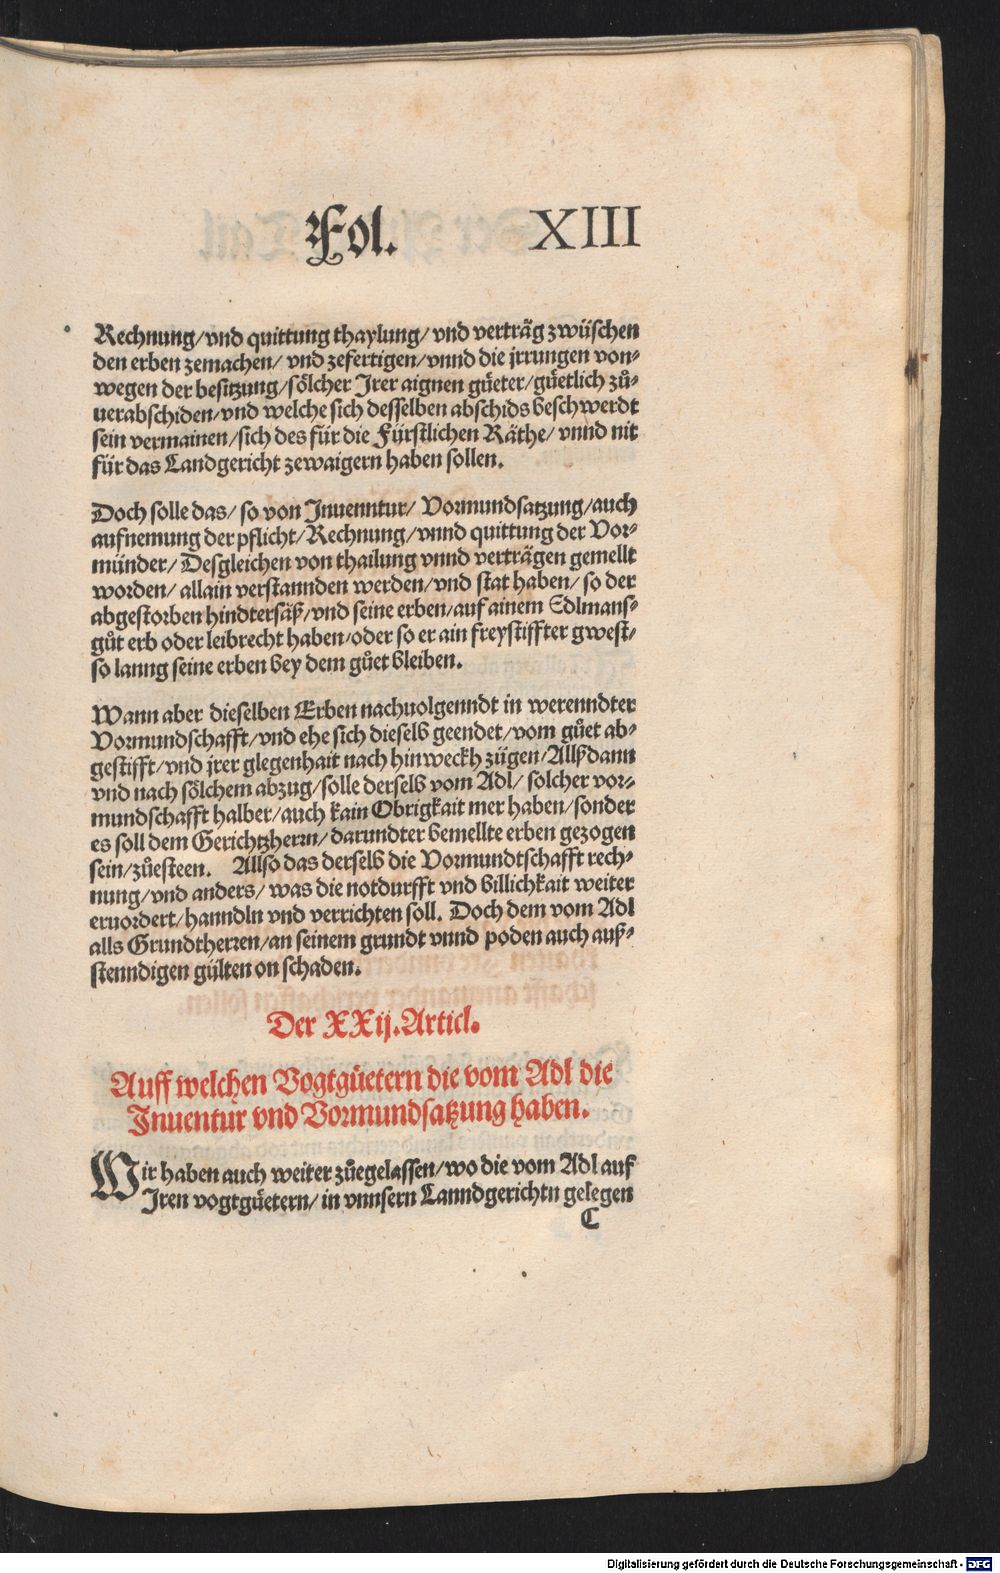 Fol. XIII
Rechnung/ vnd quittung thaylung/ vnd verträg zwüschen
den erben zemachen/ vnd zefertigen/ vnnd die jrrungen von-
wegen der besitzung/ sölcher Irer aignen güeter/ güetlich zů-
uerabschiden/ vnd welche sich desselben abschids beschwerdt
sein vermainen/ sich des für die Fürstlichen Räthe/ vnnd nit
für das Landgericht zewaigern haben sollen.
Doch solle das/ so von Inuenntur/ Vormundsatzung/ auch
aufnemung der pflicht/ Rechnung/ vnnd quittung der Vor-
münder/ Desgleichen von thailung vnnd verträgen gemellt
worden/ allain verstannden werden/ vnd stat haben/ so der
abgestorben hindtersäß/ vnd seine erben/ auf ainem Edlmans-
gůt erb oder leibrecht haben/ oder so er ain freystiffter gwest/
so lanng seine erben bey dem gůet bleiben.
Wann aber dieselben Erben nachuolgenndt in werenndter
Vormundschafft/ vnd ehe sich dieselb geendet/ vom gůet ab-
gestifft/ vnd jrer glegenhait nach hinweckh zügen/ Allß dann
vnd nach sölchem abzug/ solle derselb vom Adl/ solcher vor-
mundschafft halber/ auch kain Obrigkait mer haben/ sonder
es soll dem Gerichtzherrn/ darundter bemellte erben gezogen
sein/ zůesteen. Allso das derselb die Vormundtschafft rech-
nung/ vnd anders/ was die notdurfft vnd billichkait weiter
eruordert/ hanndln vnd verrichten soll. Doch dem vom Adl
alls Grundtherren/ an seinem grundt vnnd poden auch auß-
stenndigen gülten on schaden.
Der XXij. Articl.
Auff welchen Vogtgüetern die vom Adl die
Inuentur vnd Vormundsatzung haben.
Wir haben auch weiter zůegelassen/ wo die vom Adl auf
Iren vogtgüetern/ in vnnsern Lanndgerichtn gelegen
C
Digitalisierung gefördert durch die Deutsche Forschungsgemeinschaft - DFG